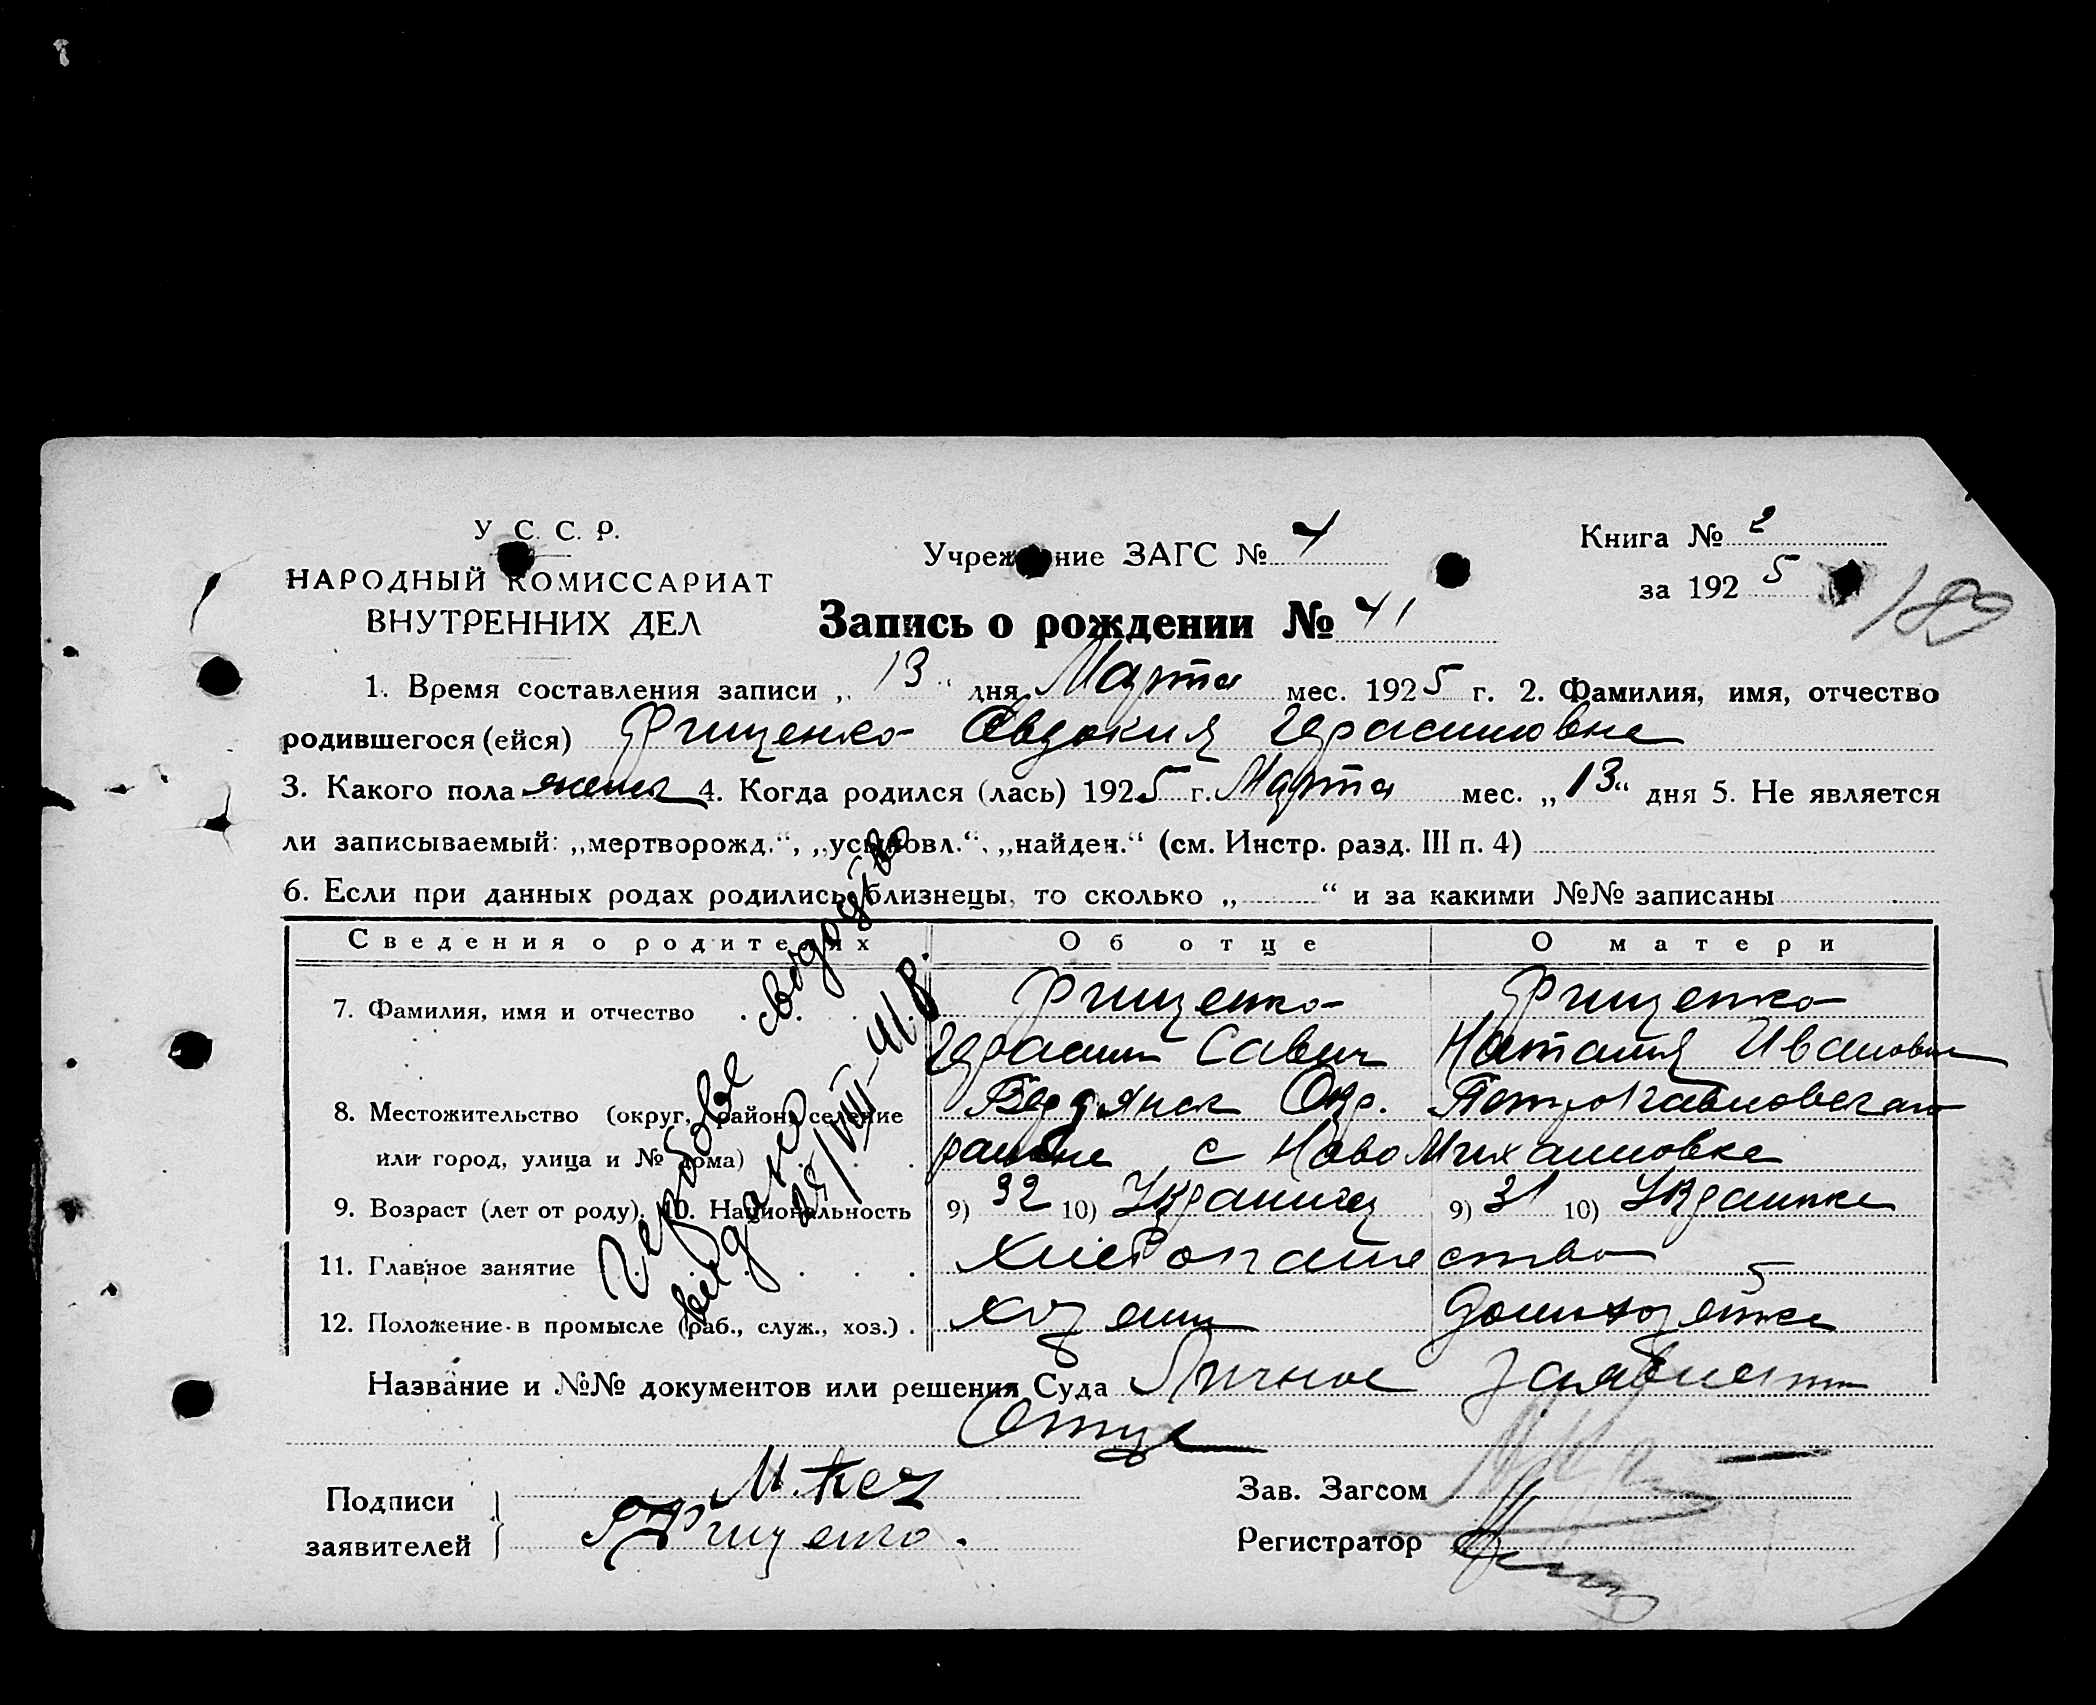 У. С. С. Р.
НАРОДНЫЙ КОМИССАРИАТ
ВНУТРЕННИХ ДЕЛ
Учреждение ЗАГС № 4
Книга № 2
за 1925
189
Запись о рождении № 41
1. Время составления записи „13“ дня Марта мес. 1925 г. 2. Фамилия, имя, отчество
родившегося (ейся) Грищенко Евдокия Герасимовна
3. Какого пола женск 4. Когда родился (лась) 1925 г. Марта мес. „13“ дня 5. Не является
ли записываемый: „мертворожд.“, „усыновл.“, „найден.“ (см. Инстр. разд. III п. 4)
6. Если при данных родах родились близнецы, то сколько „ “ и за какими №№ записаны
Сведения о родителях Об отце О матери
7. Фамилия, имя и отчество Грищенко Грищенко
Герасим Савич Наталия Ивановна
8. Местожительство (округ, район, селение Бердянск Окр. Петропавловского
или город, улица и № дома) района с Ново Михайловка
9. Возраст (лет от роду). 10. Национальность 9) 32 10) Украинец 9) 31 10) Украинка
11. Главное занятие Хлебопашество
12. Положение в промысле (раб., служ., хоз.) хозяин домохозяйка
Название и №№ документов или решения Суда Личное заявление
Отца
Гербове свидоцтво
видано
Подписи
заявителей
Грищенко.
Зав. Загсом
Регистратор